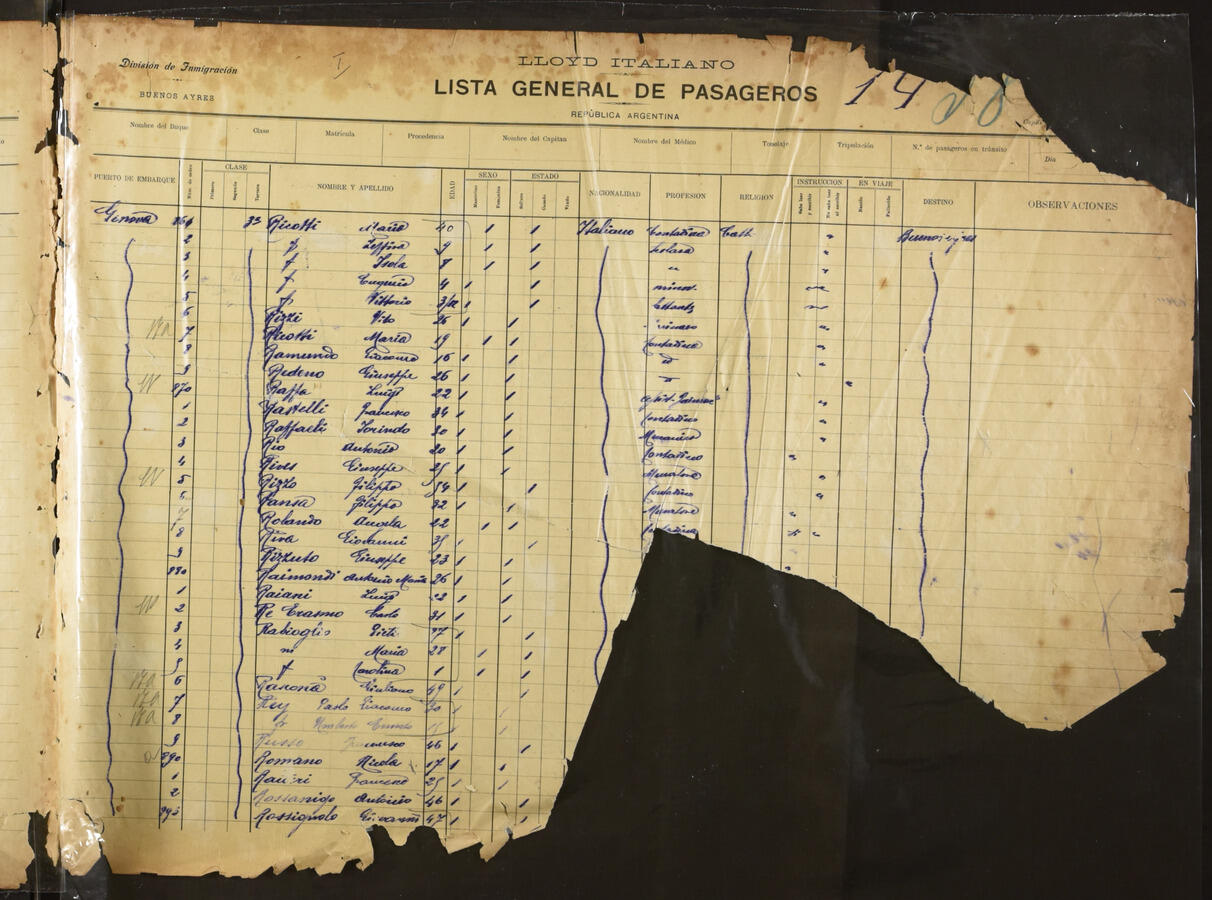 División de Inmigración
BUENOS AYRES
I
LLOYD ITALIANO
LISTA GENERAL DE PASAGEROS
REPÚBLICA ARGENTINA
14
Nombre del Buque Clase Matrícula Procedencia Nombre del Capitan Nombre del Médico Tonelaje Tripulación N.º de pasageros en tránsito Día
PUERTO DE EMBARQUE Núm. de orden CLASE Primera Segunda Tercera NOMBRE Y APELLIDO EDAD SEXO Masculino Femenino ESTADO Soltero Casado Viudo NACIONALIDAD PROFESION RELIGION INSTRUCCION Sabe leer y escribir No sabe leer ni escribir EN VIAJE Nacido Fallecido DESTINO OBSERVACIONES
Genova 861 33 Ricotti Maria 40 Italiano Contadina Catt. Buenos
2 " Zeffira 9 scolara
3 " Isola 8 "
4 " Eugenio 4
5 " Vittorio 3/12
6 Rizzi Vito 26
7 Ricotti Maria 19 Contadina
8 Ramundo Giacomo 16 "
9 Redeno Giuseppe 26 "
870 Raffa Luigi 22
1 Rastelli Francesco 34 Contadino
2 Raffaeli Torindo 20 Meccanico
3 Rio Antonio 20 Contadino
4 Rives Giuseppe 25 Muratore
5 Rizzo Filippo 34 Contadino
6 Ransa Filippo 32 Muratore
7 Rolando Amelia 22 Contadina
8 Riva Giovanni 35
9 Rizzuto Giuseppe 23
880 Raimondi Antonio Maria 26
1 Raiani Luigi 22
2 Re Erasmo Carlo 31
3 Rabioglio 37
4 " Maria 28
5 " Carolina 1
6 Rasona Giuliano 49
7 Rey Paolo Giacomo 30
8 " Ernesto
9 Russo Francesco 46
890 Romano Nicola 17
1 25
2 Rossanigo Antonio 46
893 Rossignolo Giovanni 47